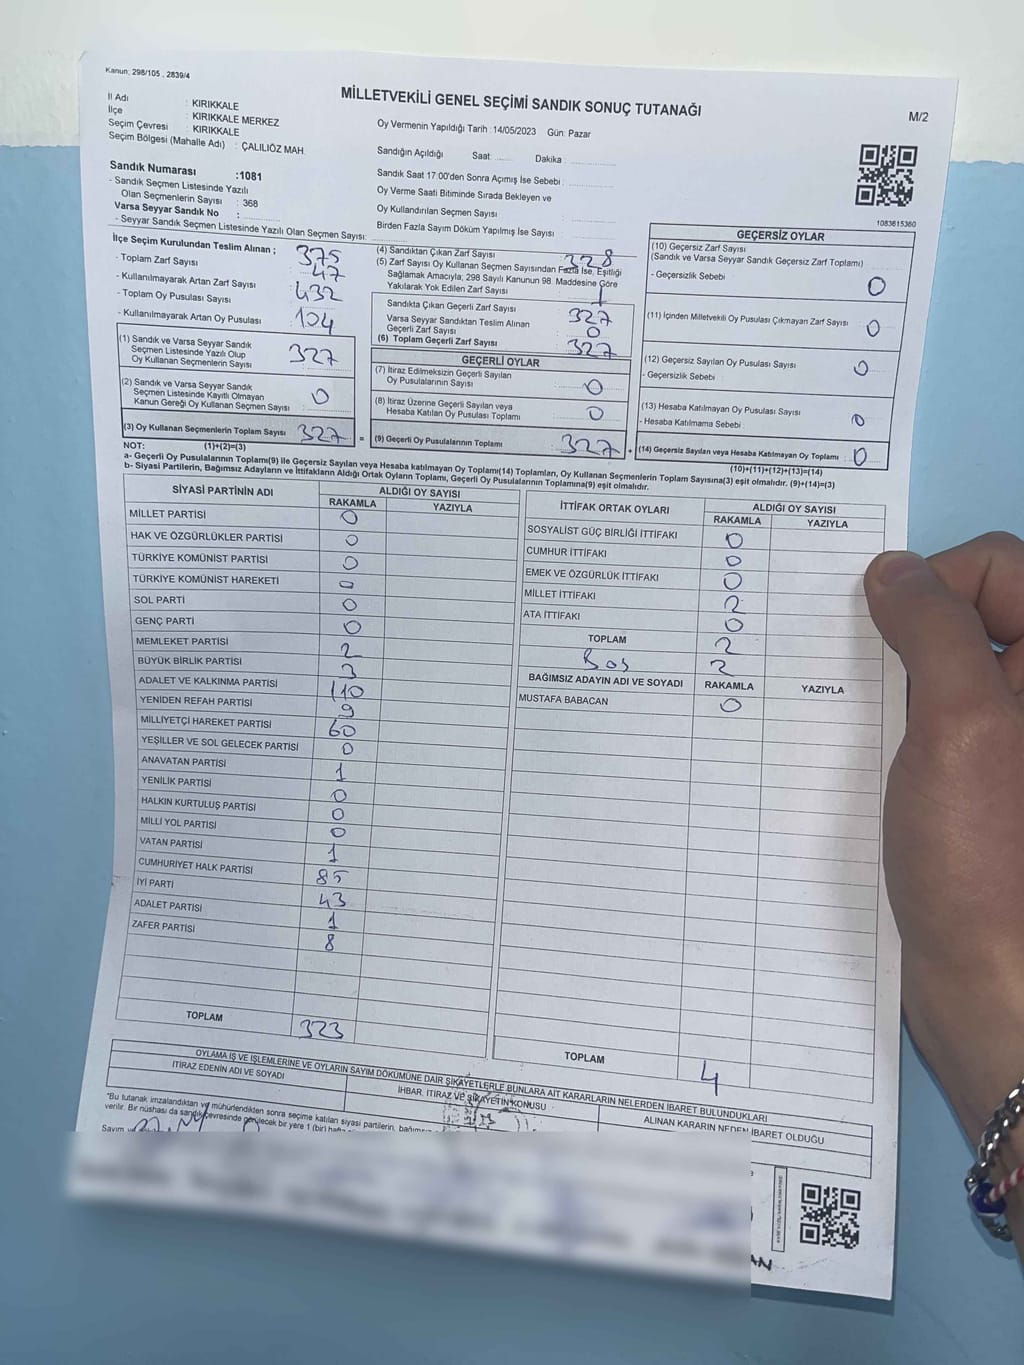 Kanun; 298/105 , 2839/4
MİLLETVEKİLİ GENEL SEÇİMİ SANDIK SONUÇ TUTANAĞI
M/2
İl Adı : KIRIKKALE
İlçe : KIRIKKALE MERKEZ
Seçim Çevresi : KIRIKKALE
Seçim Bölgesi (Mahalle Adı) : ÇALILIÖZ MAH.
Sandık Numarası :1081
- Sandık Seçmen Listesinde Yazılı
Olan Seçmenlerin Sayısı : 368
Varsa Seyyar Sandık No :
- Seyyar Sandık Seçmen Listesinde Yazılı Olan Seçmen Sayısı:
Oy Vermenin Yapıldığı Tarih :14/05/2023 Gün: Pazar
Sandığın Açıldığı Saat: Dakika :
Sandık Saat 17:00'den Sonra Açımış İse Sebebi :
Oy Verme Saati Bitiminde Sırada Bekleyen ve
Oy Kullandırılan Seçmen Sayısı :
Birden Fazla Sayım Döküm Yapılmış İse Sayısı :
1083615360
İlçe Seçim Kurulundan Teslim Alınan ;
- Toplam Zarf Sayısı : 375
- Kullanılmayarak Artan Zarf Sayısı : 47
- Toplam Oy Pusulası Sayısı : 432
- Kullanılmayarak Artan Oy Pusulası : 104
(1) Sandık ve Varsa Seyyar Sandık
Seçmen Listesinde Yazılı Olup
Oy Kullanan Seçmenlerin Sayısı : 327
(2) Sandık ve Varsa Seyyar Sandık
Seçmen Listesinde Kayıtlı Olmayan
Kanun Gereği Oy Kullanan Seçmen Sayısı : 0
(3) Oy Kullanan Seçmenlerin Toplam Sayısı : 327
(4) Sandıktan Çıkan Zarf Sayısı : 328
(5) Zarf Sayısı Oy Kullanan Seçmen Sayısından Fazla İse, Eşitliği
Sağlamak Amacıyla; 298 Sayılı Kanunun 98. Maddesine Göre
Yakılarak Yok Edilen Zarf Sayısı : 1
Sandıkta Çıkan Geçerli Zarf Sayısı : 327
Varsa Seyyar Sandıktan Teslim Alınan
Geçerli Zarf Sayısı : 0
(6) Toplam Geçerli Zarf Sayısı : 327
GEÇERLİ OYLAR
(7) İtiraz Edilmeksizin Geçerli Sayılan
Oy Pusulalarının Sayısı : 0
(8) İtiraz Üzerine Geçerli Sayılan veya
Hesaba Katılan Oy Pusulası Toplamı : 0
= (9) Geçerli Oy Pusulalarının Toplamı : 327
GEÇERSİZ OYLAR
(10) Geçersiz Zarf Sayısı
(Sandık ve Varsa Seyyar Sandık Geçersiz Zarf Toplamı)
- Geçersizlik Sebebi : 0
(11) İçinden Milletvekili Oy Pusulası Çıkmayan Zarf Sayısı : 0
(12) Geçersiz Sayılan Oy Pusulası Sayısı : 0
- Geçersizlik Sebebi :
(13) Hesaba Katılmayan Oy Pusulası Sayısı : 0
- Hesaba Katılmama Sebebi :
+ (14) Geçersiz Sayılan veya Hesaba Katılmayan Oy Toplamı : 0
NOT: (1)+(2)=(3)
(10)+(11)+(12)+(13)=(14)
a- Geçerli Oy Pusulalarının Toplamı(9) ile Geçersiz Sayılan veya Hesaba katılmayan Oy Toplamı(14) Toplamları, Oy Kullanan Seçmenlerin Toplam Sayısına(3) eşit olmalıdır. (9)+(14)=(3)
b- Siyasi Partilerin, Bağımsız Adayların ve İttifakların Aldığı Ortak Oyların Toplamı, Geçerli Oy Pusulalarının Toplamına(9) eşit olmalıdır.
SİYASİ PARTİNİN ADI ALDIĞI OY SAYISI
RAKAMLA YAZIYLA
MİLLET PARTİSİ 0
HAK VE ÖZGÜRLÜKLER PARTİSİ 0
TÜRKİYE KOMÜNİST PARTİSİ 0
TÜRKİYE KOMÜNİST HAREKETİ 0
SOL PARTİ 0
GENÇ PARTİ 0
MEMLEKET PARTİSİ 2
BÜYÜK BİRLİK PARTİSİ 3
ADALET VE KALKINMA PARTİSİ 110
YENİDEN REFAH PARTİSİ 9
MİLLİYETÇİ HAREKET PARTİSİ 60
YEŞİLLER VE SOL GELECEK PARTİSİ 0
ANAVATAN PARTİSİ 1
YENİLİK PARTİSİ 0
HALKIN KURTULUŞ PARTİSİ 0
MİLLİ YOL PARTİSİ 0
VATAN PARTİSİ 1
CUMHURİYET HALK PARTİSİ 85
İYİ PARTİ 43
ADALET PARTİSİ 1
ZAFER PARTİSİ 8
TOPLAM 323
İTTİFAK ORTAK OYLARI ALDIĞI OY SAYISI
RAKAMLA YAZIYLA
SOSYALİST GÜÇ BİRLİĞİ İTTİFAKI 0
CUMHUR İTTİFAKI 0
EMEK VE ÖZGÜRLÜK İTTİFAKI 0
MİLLET İTTİFAKI 2
ATA İTTİFAKI 0
TOPLAM 2
Boş 2
BAĞIMSIZ ADAYIN ADI VE SOYADI RAKAMLA YAZIYLA
MUSTAFA BABACAN 0
TOPLAM 4
OYLAMA İŞ VE İŞLEMLERİNE VE OYLARIN SAYIM DÖKÜMÜNE DAİR ŞİKAYETLERLE BUNLARA AİT KARARLARIN NELERDEN İBARET BULUNDUKLARI
İTİRAZ EDENİN ADI VE SOYADI
İHBAR, İTİRAZ VE ŞİKAYETİN KONUSU
ALINAN KARARIN NEDEN İBARET OLDUĞU
"Bu tutanak imzalandıktan ve mühürlendikten sonra seçime katılan siyasi partilerin, bağımsız
verilir. Bir nüshası da sandık çevresinde görülecek bir yere 1 (bir) hafta
Sayım